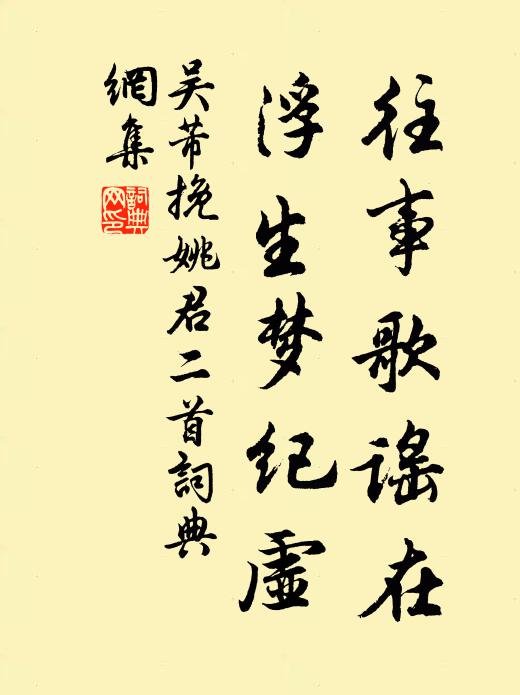 往事歌谣在
浮生梦纪虚
吴芾挽姚君二首詞典
網集
詞典網印